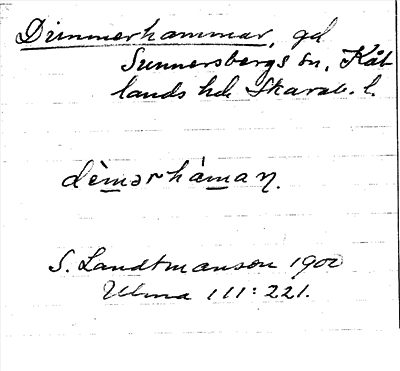 Dimmerhammar, gd
Sunnersbergs sn, Kål
lands hd Skarab. l.
dèmərhàmaɲ.
S. Landtmanson 1900
Ulma 111:221.